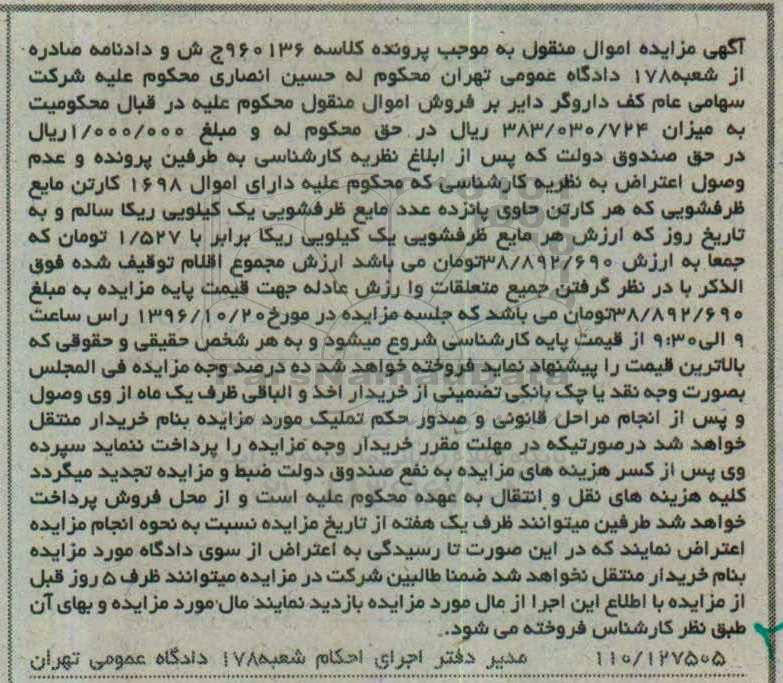 آگهی مزایده اموال منقول به موجب پرونده کلاسه ۹۶۰۱۳۶ج ش و دادنامه صادره
از شعبه۱۷۸ دادگاه عمومی تهران محکوم له حسین انصاری محکوم علیه شرکت
سهامی عام کف داروگر دایر بر فروش اموال منقول محکوم علیه در قبال محکومیت
به میزان ۳۸۳/۰۳۰/۷۲۴ ریال در حق محکوم له و مبلغ ۱/۰۰۰/۰۰۰ریال
در حق صندوق دولت که پس از ابلاغ نظریه کارشناسی به طرفین پرونده و عدم
وصول اعتراض به نظریه کارشناسی که محکوم علیه دارای اموال ۱۶۹۸ کارتن مایع
ظرفشویی که هر کارتن حاوی پانزده عدد مایع ظرفشویی یک کیلویی ریکا سالم و به
تاریخ روز که ارزش هر مایع ظرفشویی یک کیلویی ریکا برابر با ۱/۵۲۷ تومان که
جمعا به ارزش ۳۸/۸۹۲/۶۹۰تومان می باشد ارزش مجموع اقلام توقیف شده فوق
الذکر با در نظر گرفتن جمیع متعلقات وا رزش عادله جهت قیمت پایه مزایده به مبلغ
۳۸/۸۹۲/۶۹۰تومان می باشد که جلسه مزایده در مورخ۱۳۹۶/۱۰/۲۰ راس ساعت
۹ الی۹:۳۰ از قیمت پایه کارشناسی شروع میشود و به هر شخص حقیقی و حقوقی که
بالاترین قیمت را پیشنهاد نماید فروخته خواهد شد ده درصد وجه مزایده فی المجلس
بصورت وجه نقد یا چک بانکی تضمینی از خریدار اخذ و الباقی ظرف یک ماه از وی وصول
و پس از انجام مراحل قانونی و صدور حکم تملیک مورد مزایده بنام خریدار منتقل
خواهد شد درصورتیکه در مهلت مقرر خریدار وجه مزایده را پرداخت ننماید سپرده
وی پس از کسر هزینه های مزایده به نفع صندوق دولت ضبط و مزایده تجدید میگردد
کلیه هزینه های نقل و انتقال به عهده محکوم علیه است و از محل فروش پرداخت
خواهد شد طرفین میتوانند ظرف یک هفته از تاریخ مزایده نسبت به نحوه انجام مزایده
اعتراض نمایند که در این صورت تا رسیدگی به اعتراض از سوی دادگاه مورد مزایده
بنام خریدار منتقل نخواهد شد ضمنا طالبین شرکت در مزایده میتوانند ظرف ۵ روز قبل
از مزایده با اطلاع این اجرا از مال مورد مزایده بازدید نمایند مال مورد مزایده و بهای آن
طبق نظر کارشناس فروخته می شود.
۱۱۰/۱۲۷۵۰۵ مدیر دفتر اجرای احکام شعبه۱۷۸ دادگاه عمومی تهران